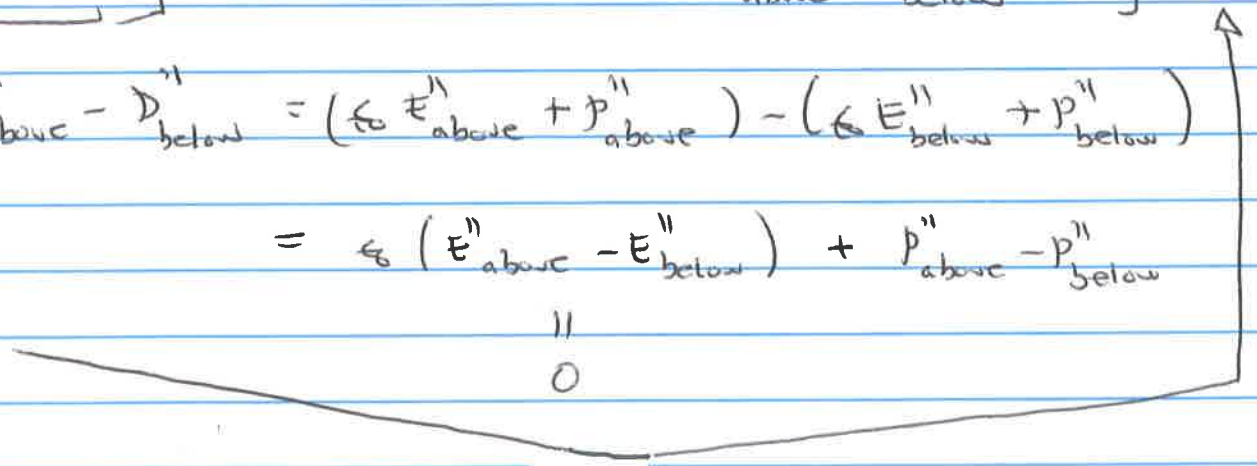 above below
bove - D"below = (ε₀ E"above + P"above) - (ε₀ E"below + P"below)
= ε₀ (E"above - E"below) + P"above - P"below
"
0